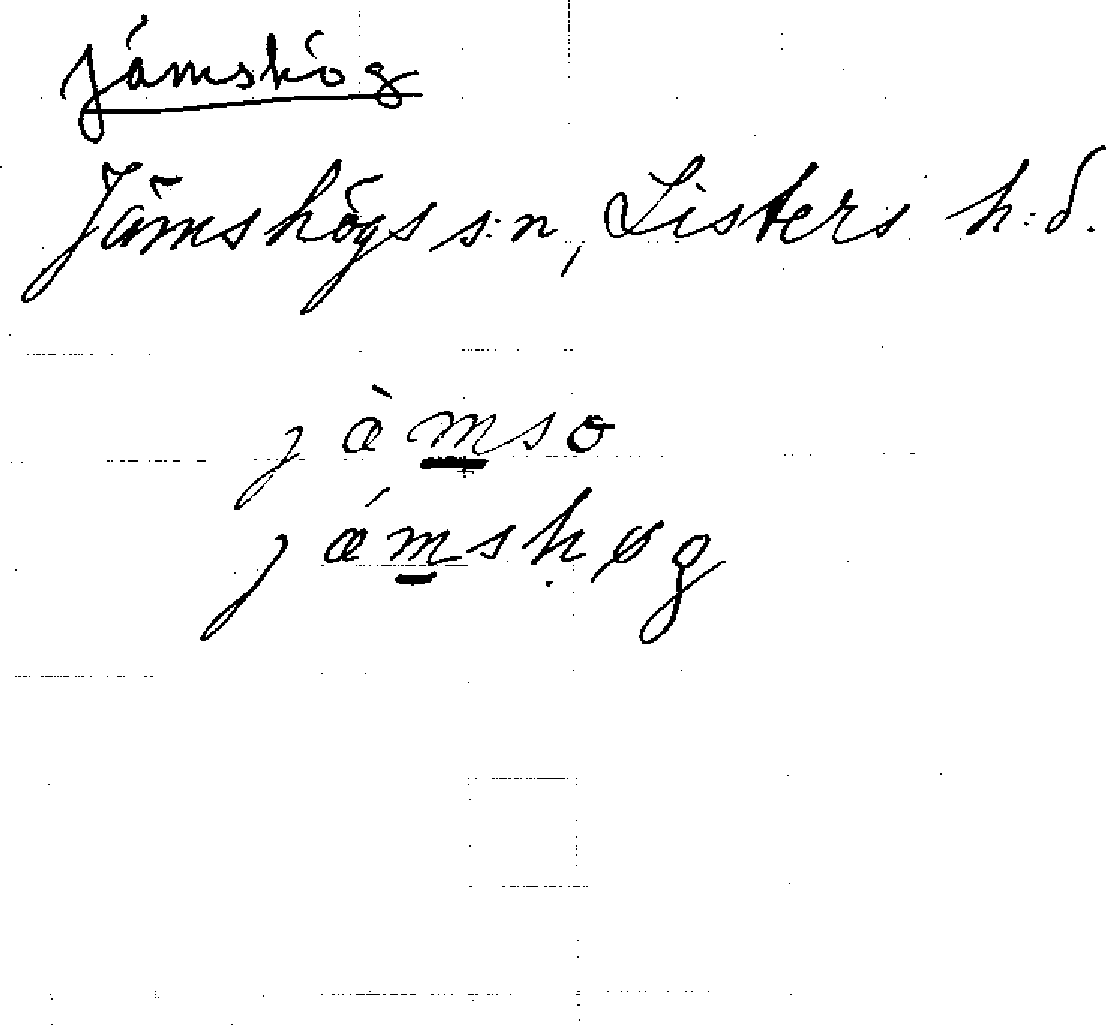 Jämshög
Jämshögs s:n, Listers h:d.
jæ̀mso
jǽmshøg